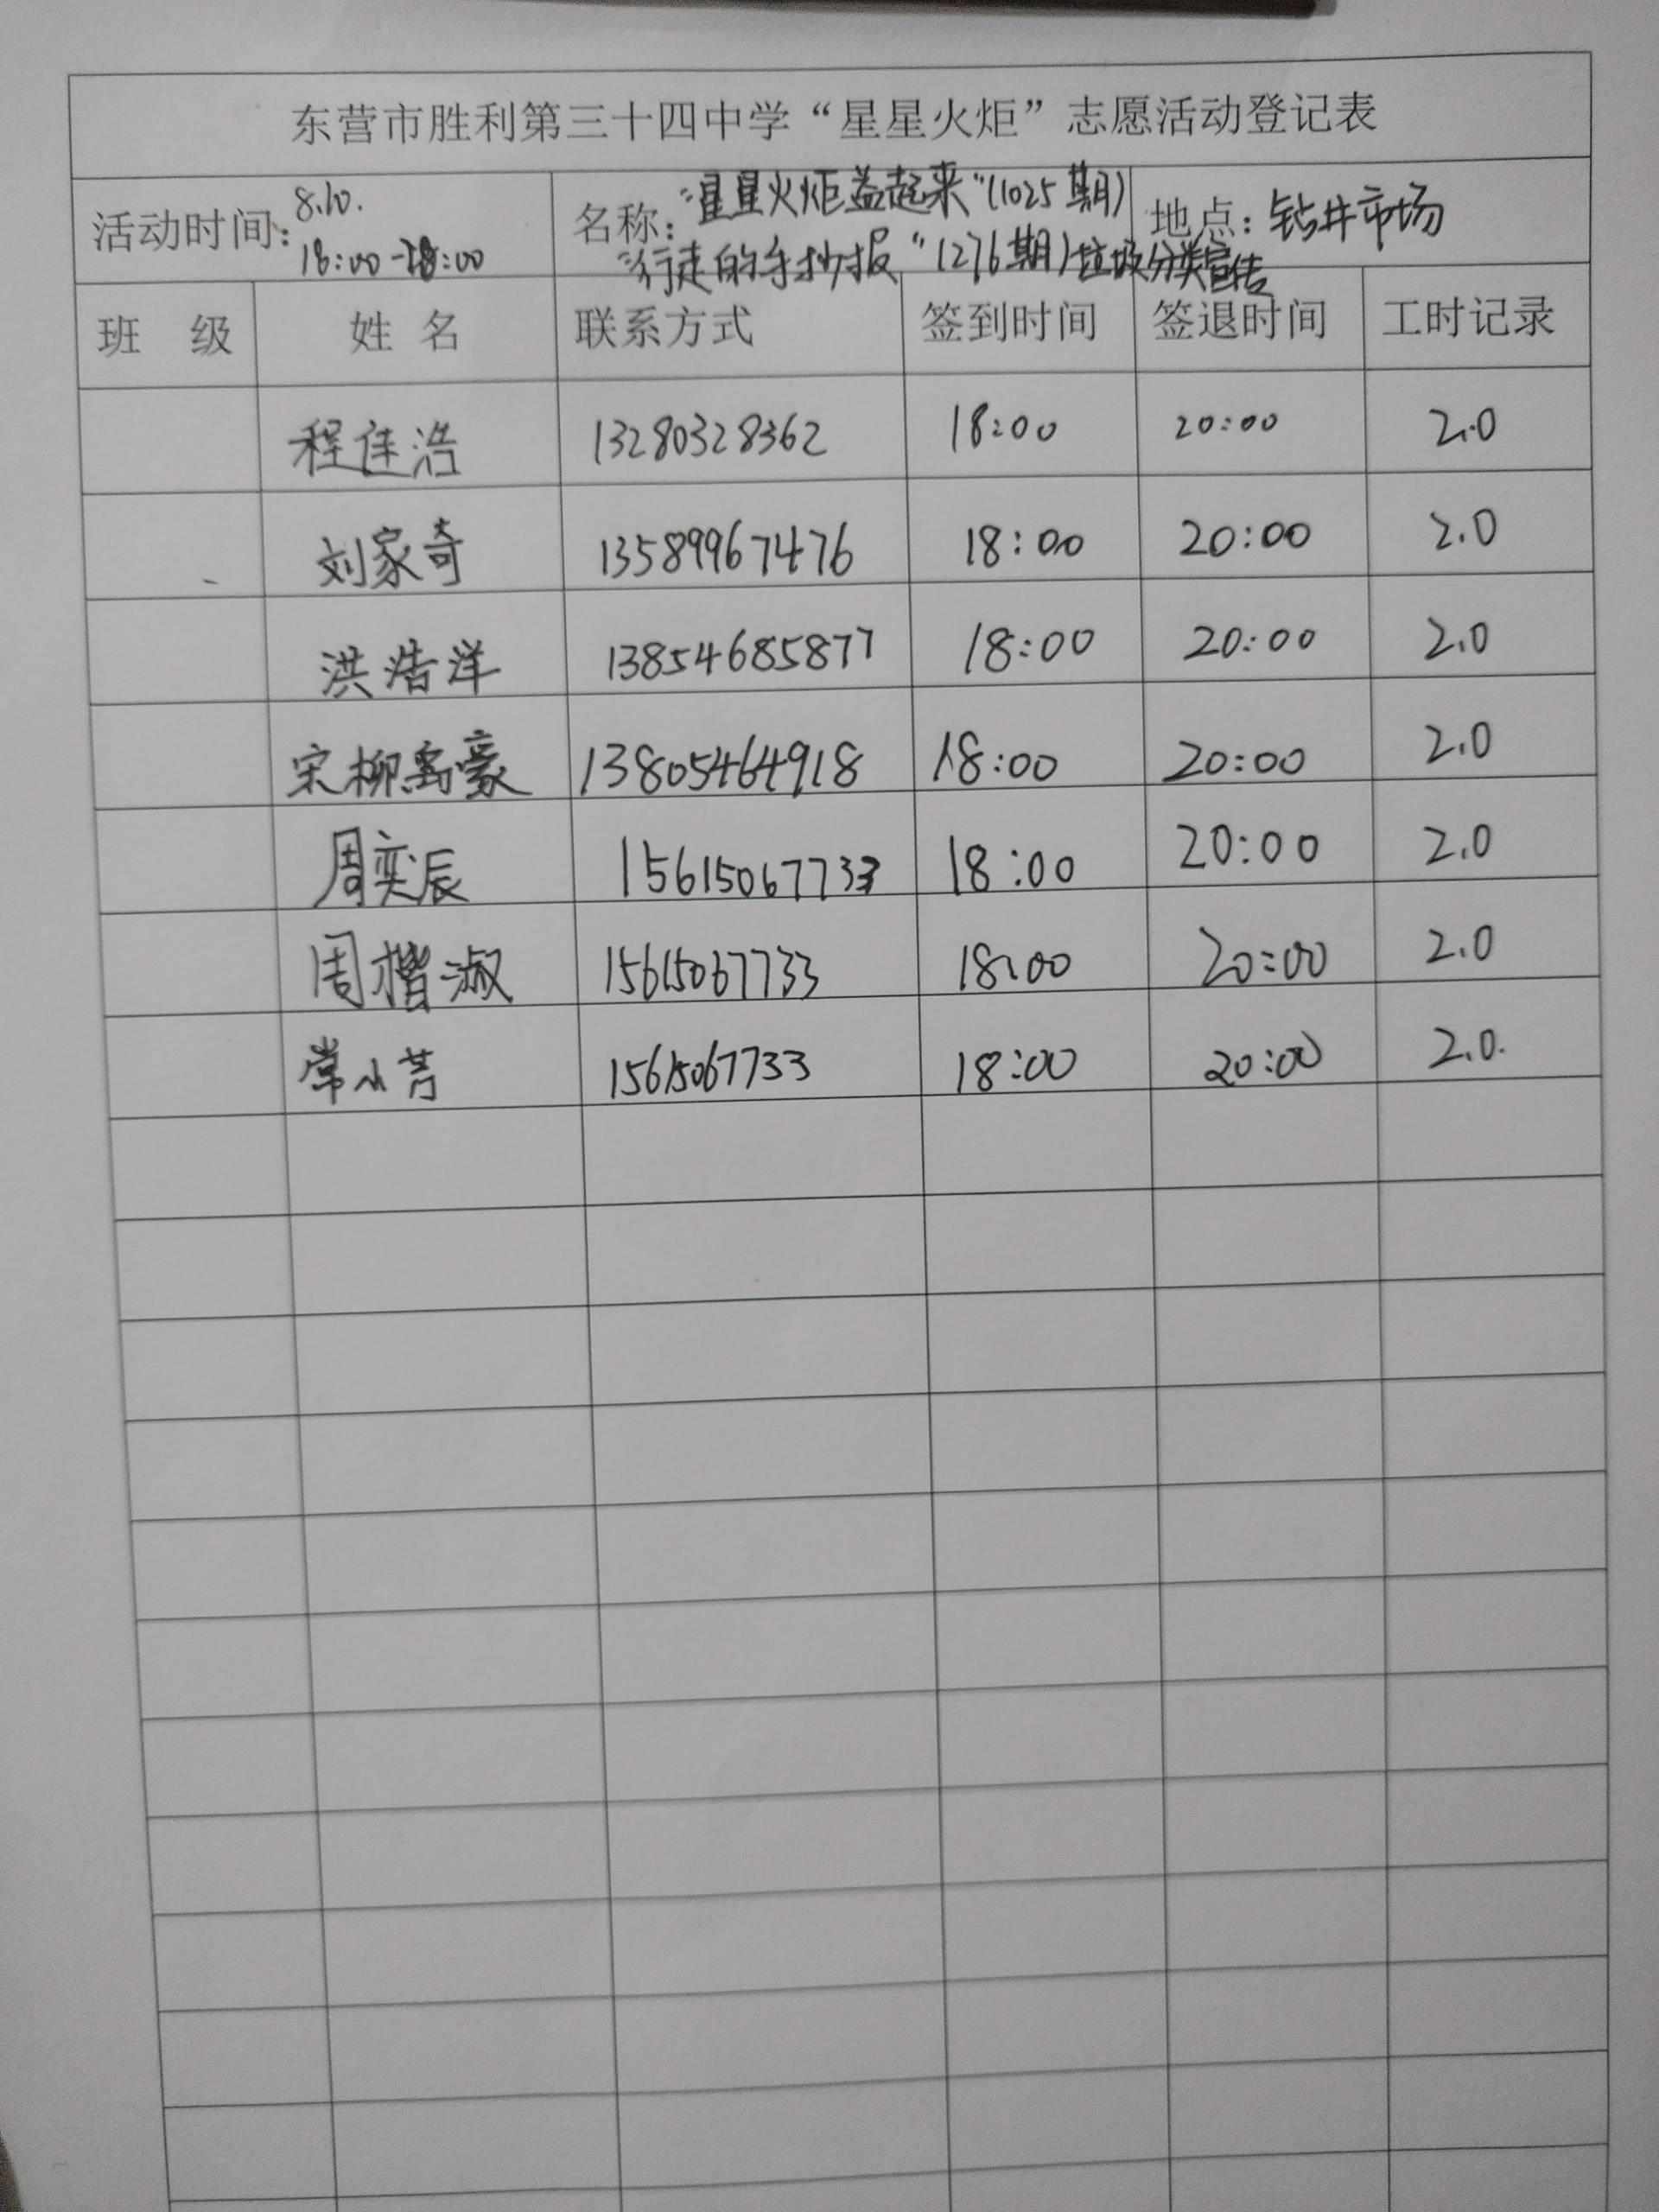 东营市胜利第三十四中学“星星火炬”志愿活动登记表
活动时间: 8.10. 18:00-20:00
名称: “星星火炬益起来”(1025期)
“行走的手抄报”(276期)垃圾分类宣传
地点: 钻井市场
班 级 姓 名 联系方式 签到时间 签退时间 工时记录
程佳浩 13280328362 18:00 20:00 2.0
刘家奇 13589967476 18:00 20:00 2.0
洪浩洋 13854685877 18:00 20:00 2.0
宋柳岛豪 13805464918 18:00 20:00 2.0
周奕辰 15615067733 18:00 20:00 2.0
周楷淑 15615067733 18:00 20:00 2.0
常小芳 15615067733 18:00 20:00 2.0.